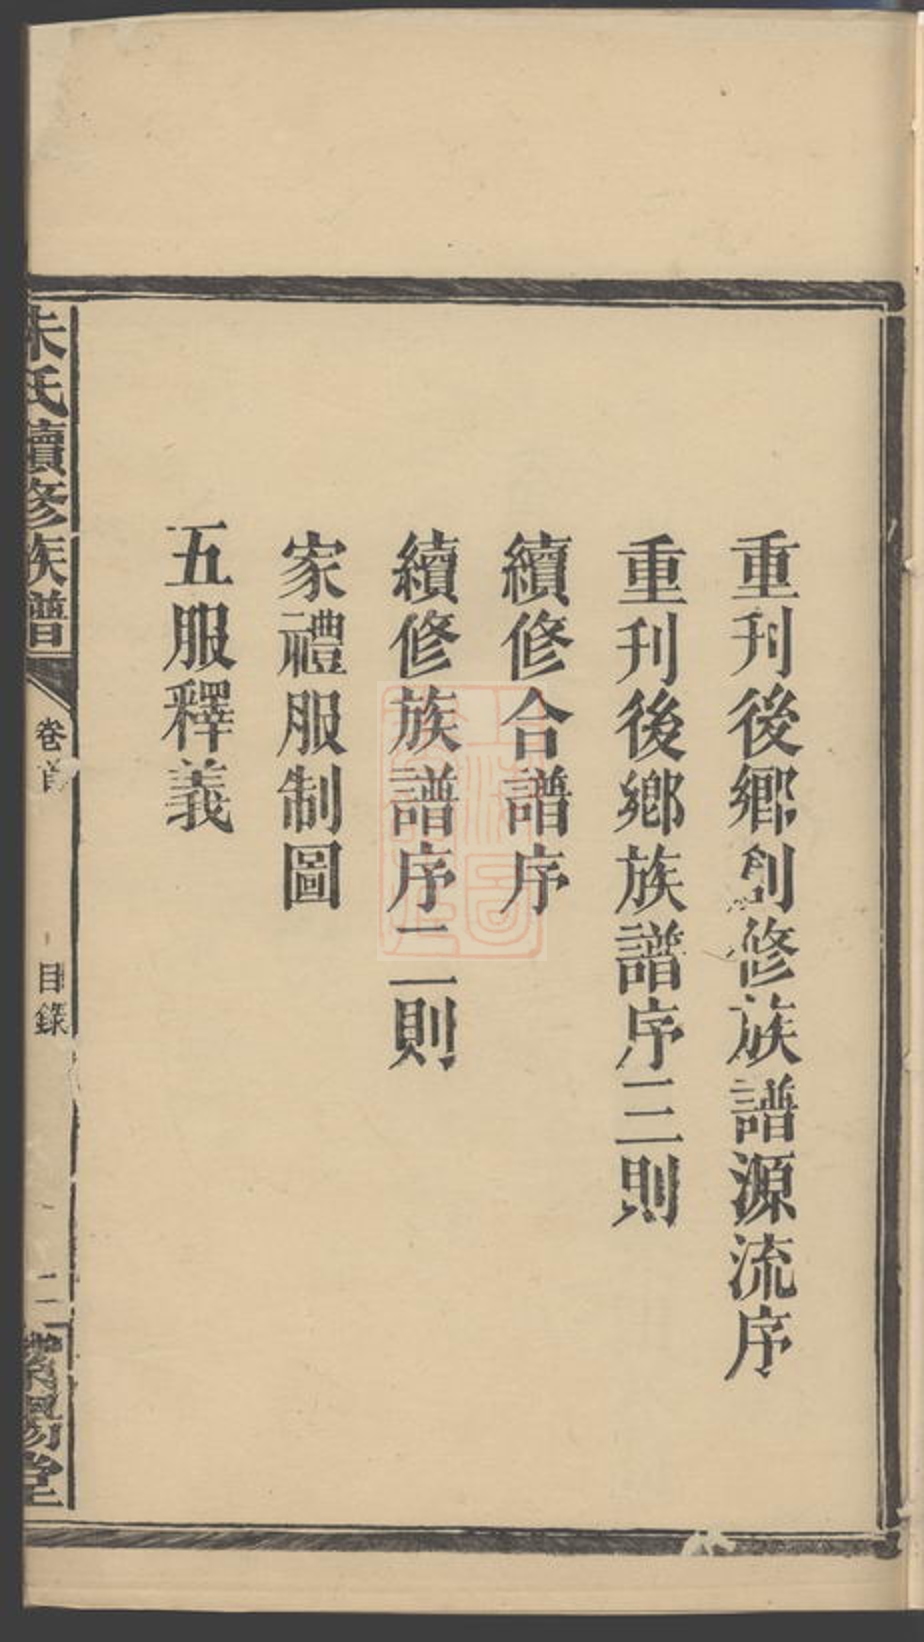 重刊後鄉創修族譜源流序
重刊後鄉族譜序三則
續修合譜序
續修族譜序二則
家禮服制圖
五服釋義
朱氏續修族譜
卷首
目錄
二
紫陽堂
上海圖書館藏